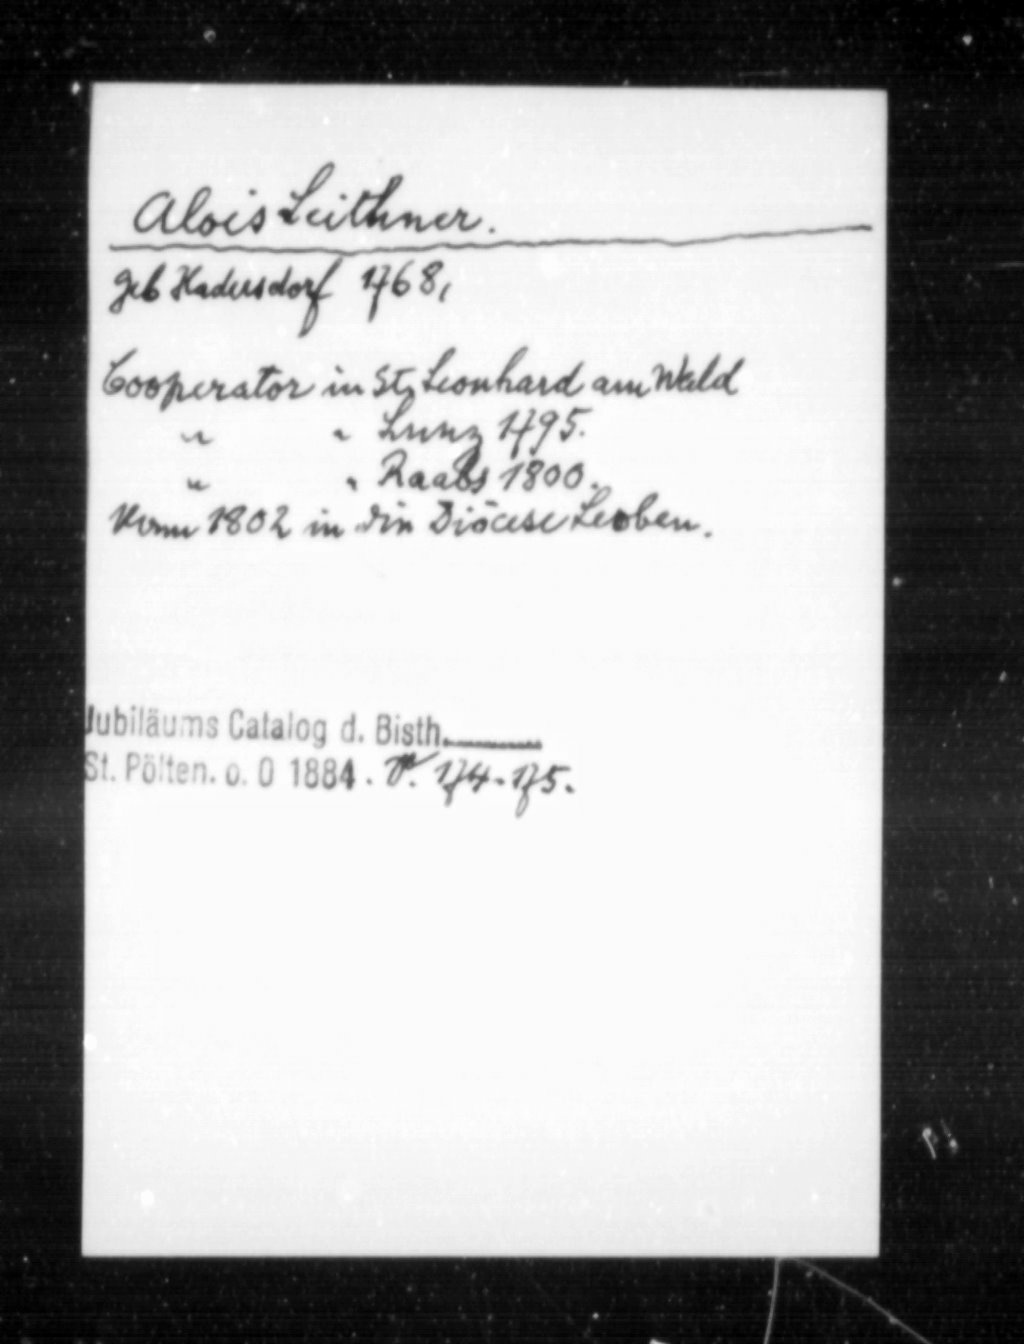 Alois Leithner.
geb Hadersdorf 1768,
Cooperator in St. Leonhard am Wald
" " Lunz 1795.
" " Raabs 1800.
1802 in die Diöcese Leoben.
Jubiläums Catalog d. Bisth.
St. Pölten. o. O 1884. P. 174-175.